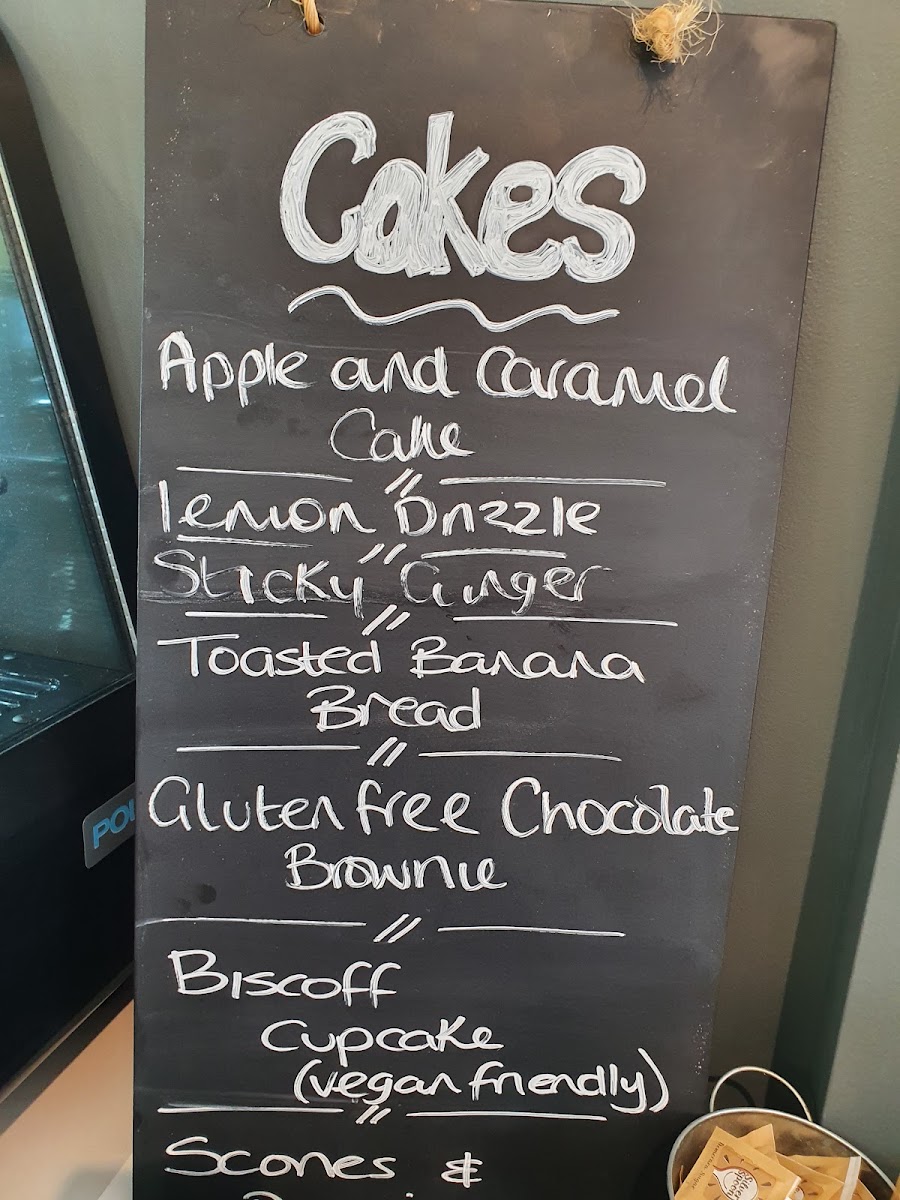 Cakes
Apple and Caramel
Cake
lemon Drizzle
Sticky Ginger
Toasted Banana
Bread
Gluten free Chocolate
Brownie
Biscoff
Cupcake
(vegan friendly)
Scones &